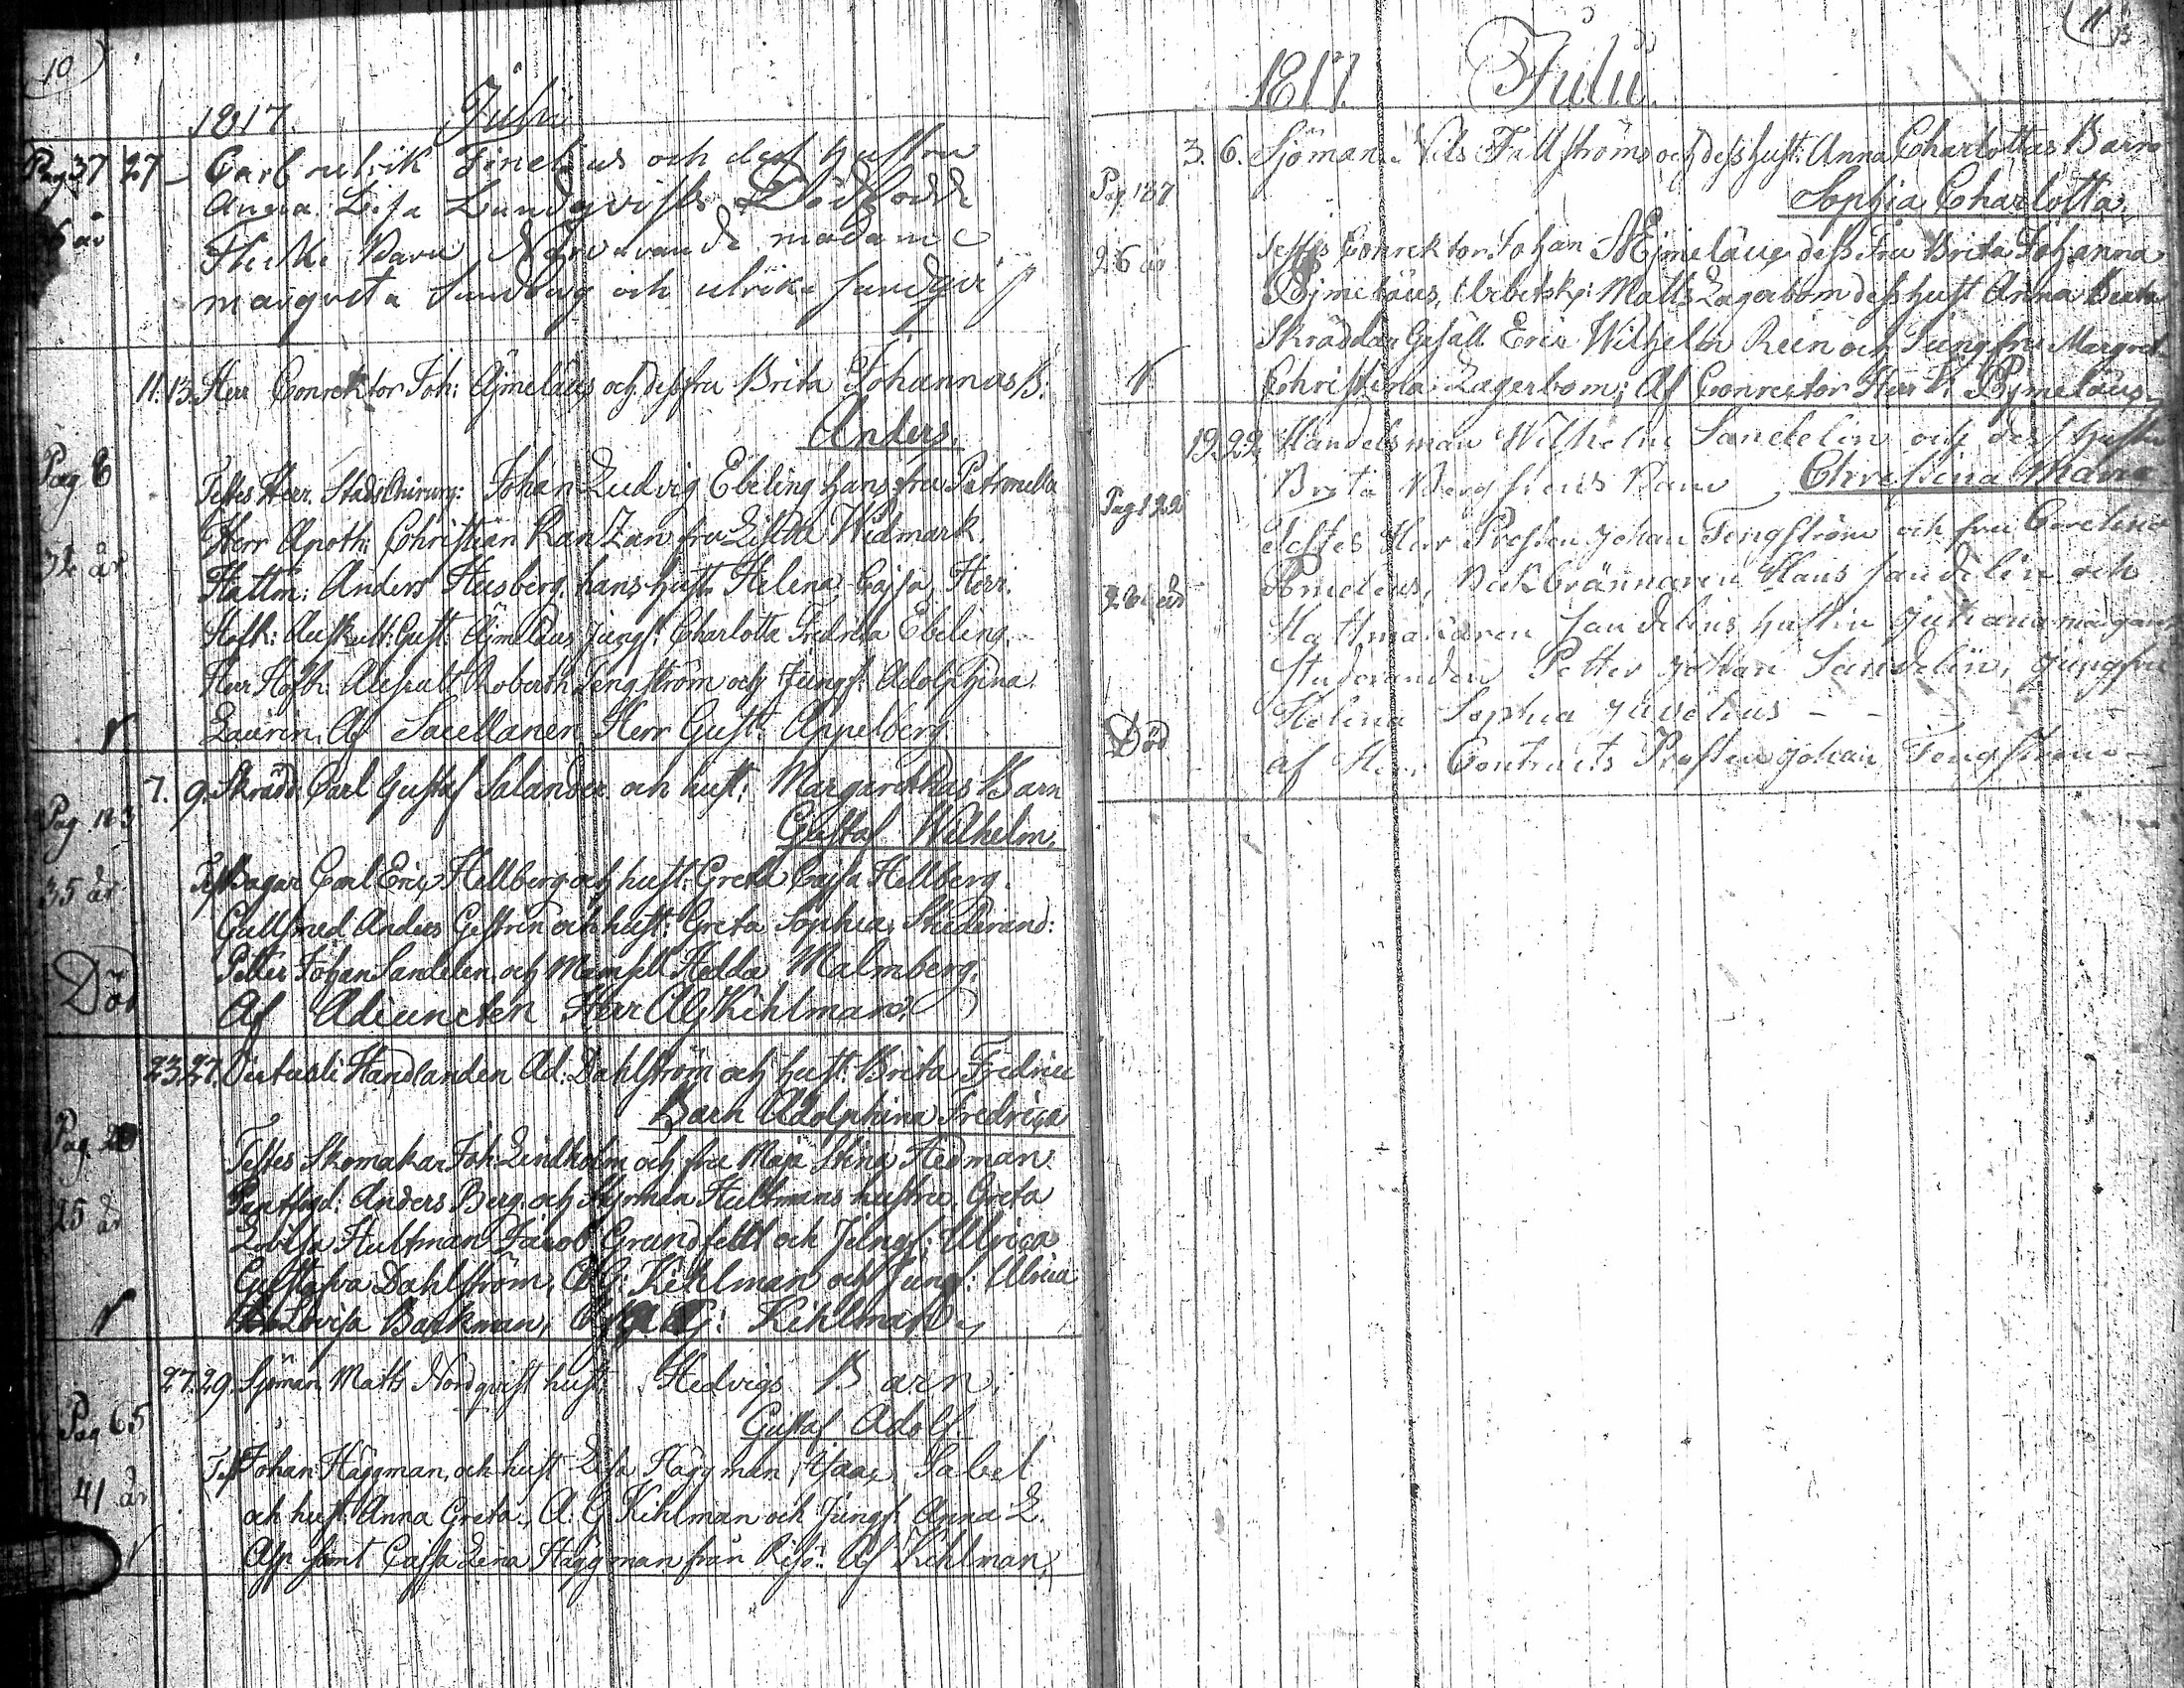 10
1817. Juni
Pag 37 27 Carl ulrik Finelius och dess hustru
Anna Lisa Lundqvists Dödfödde
6 år Flicke Barn Närvarande madame
margreta Sundberg och ulrika
11. 13. Herr Conrektor Joh: Äjmelæus och dess fru Brita Johannas B:
Anders.
Pag 6 Testes Herr Stads Chirurg: Johan Ludvig Ebeling hans fru Petronella
Herr Apoth: Christian Ran Zan fru Lisette Widmark.
32 år Hattm: Anders Husberg. hans hust. Helena Cajsa, Herr.
Hofr: Auskult: Gust: Äjmelæus Jungf. Charlotta Fredrica Ebeling.
Herr Hofr: Auscult Roberth Tengström och Jungf. Adolphina
Laurin. Af Sacellanen Herr Gust: Appelberg
7. 9. Skrädd: Carl Gustaf Salander och hust: Margarethas Barn
Pag. 123 Gustaf Wilhelm.
35 år Test Bagar Carl Eric Hellberg och hust: Greta Cajsa Hellberg.
Gullsmed Anders Gestrin och hust: Greta Sophia, Studerand:
Petter Johan Sandelin. och Mamsell Hedda Malmberg.
Död Af Adiuncten Herr AG Kihlman.
23. 27. Victuali Handlanden Ad: Dahlström och hust: Brita Fredrica
Barn Adolphina Fredrica
Pag. Testes Skomakar Joh: Lindholm och fru Maja Stina Hedman
Anders Berg. och Styrman Hultmans hustru, Greta
25 år Lovisa Hultman Jacob Grundfeldt och Jungf: Ulrica
Gustafva Dahlström, A G: Kihlman och Jungf: Ulrica
Lovisa Backman, Af A G: Kihlman
27. 29. Sjöman Matts Nordqvist hust: Hedvigs Barn,
Pag 65 Gustaf Adolf.
Test Johan Häggman, och hust Lisa Häggman, Isaac Sabel
41 år och hust: Anna Greta, A. G Kihlman och Jungf: Anna L.
Asp samt Cajsa Lena Häggman från Risö. Af Kihlman,
11
1817. Julii
3. 6. Sjöman Nils Fällströms och dess hust: Anna Charlottas Barn
Pag 137 Sophia Charlotta,
26 år Testes Conrektor Johan Äjmelæus dess Fru Brita Johanna
Äjmelæus, Arbetsk: Matts Lagerbom dess hust Anna Beata
Skräddar Gesäll Eric Wilhelm Rein och Jungfru Margret
Christina Lagerbom; Af Conrector Herr J. Äjmelæus
19. 22. Handelsman Wilhelm Sandelin och dess hustru
Brita Bergs Barn Christina Maria
Pag 122 Testes Herr Prosten Johan Tengström och fru
26 år Beckbrännaren Hans Sandelin och
Hattmakaren Sandelins hustru Juliana
Studeranden Petter Johan Sandelin, jungfru
Helina Sophia Juvelius
Död af Herr Contracts Prosten Johan Tengström